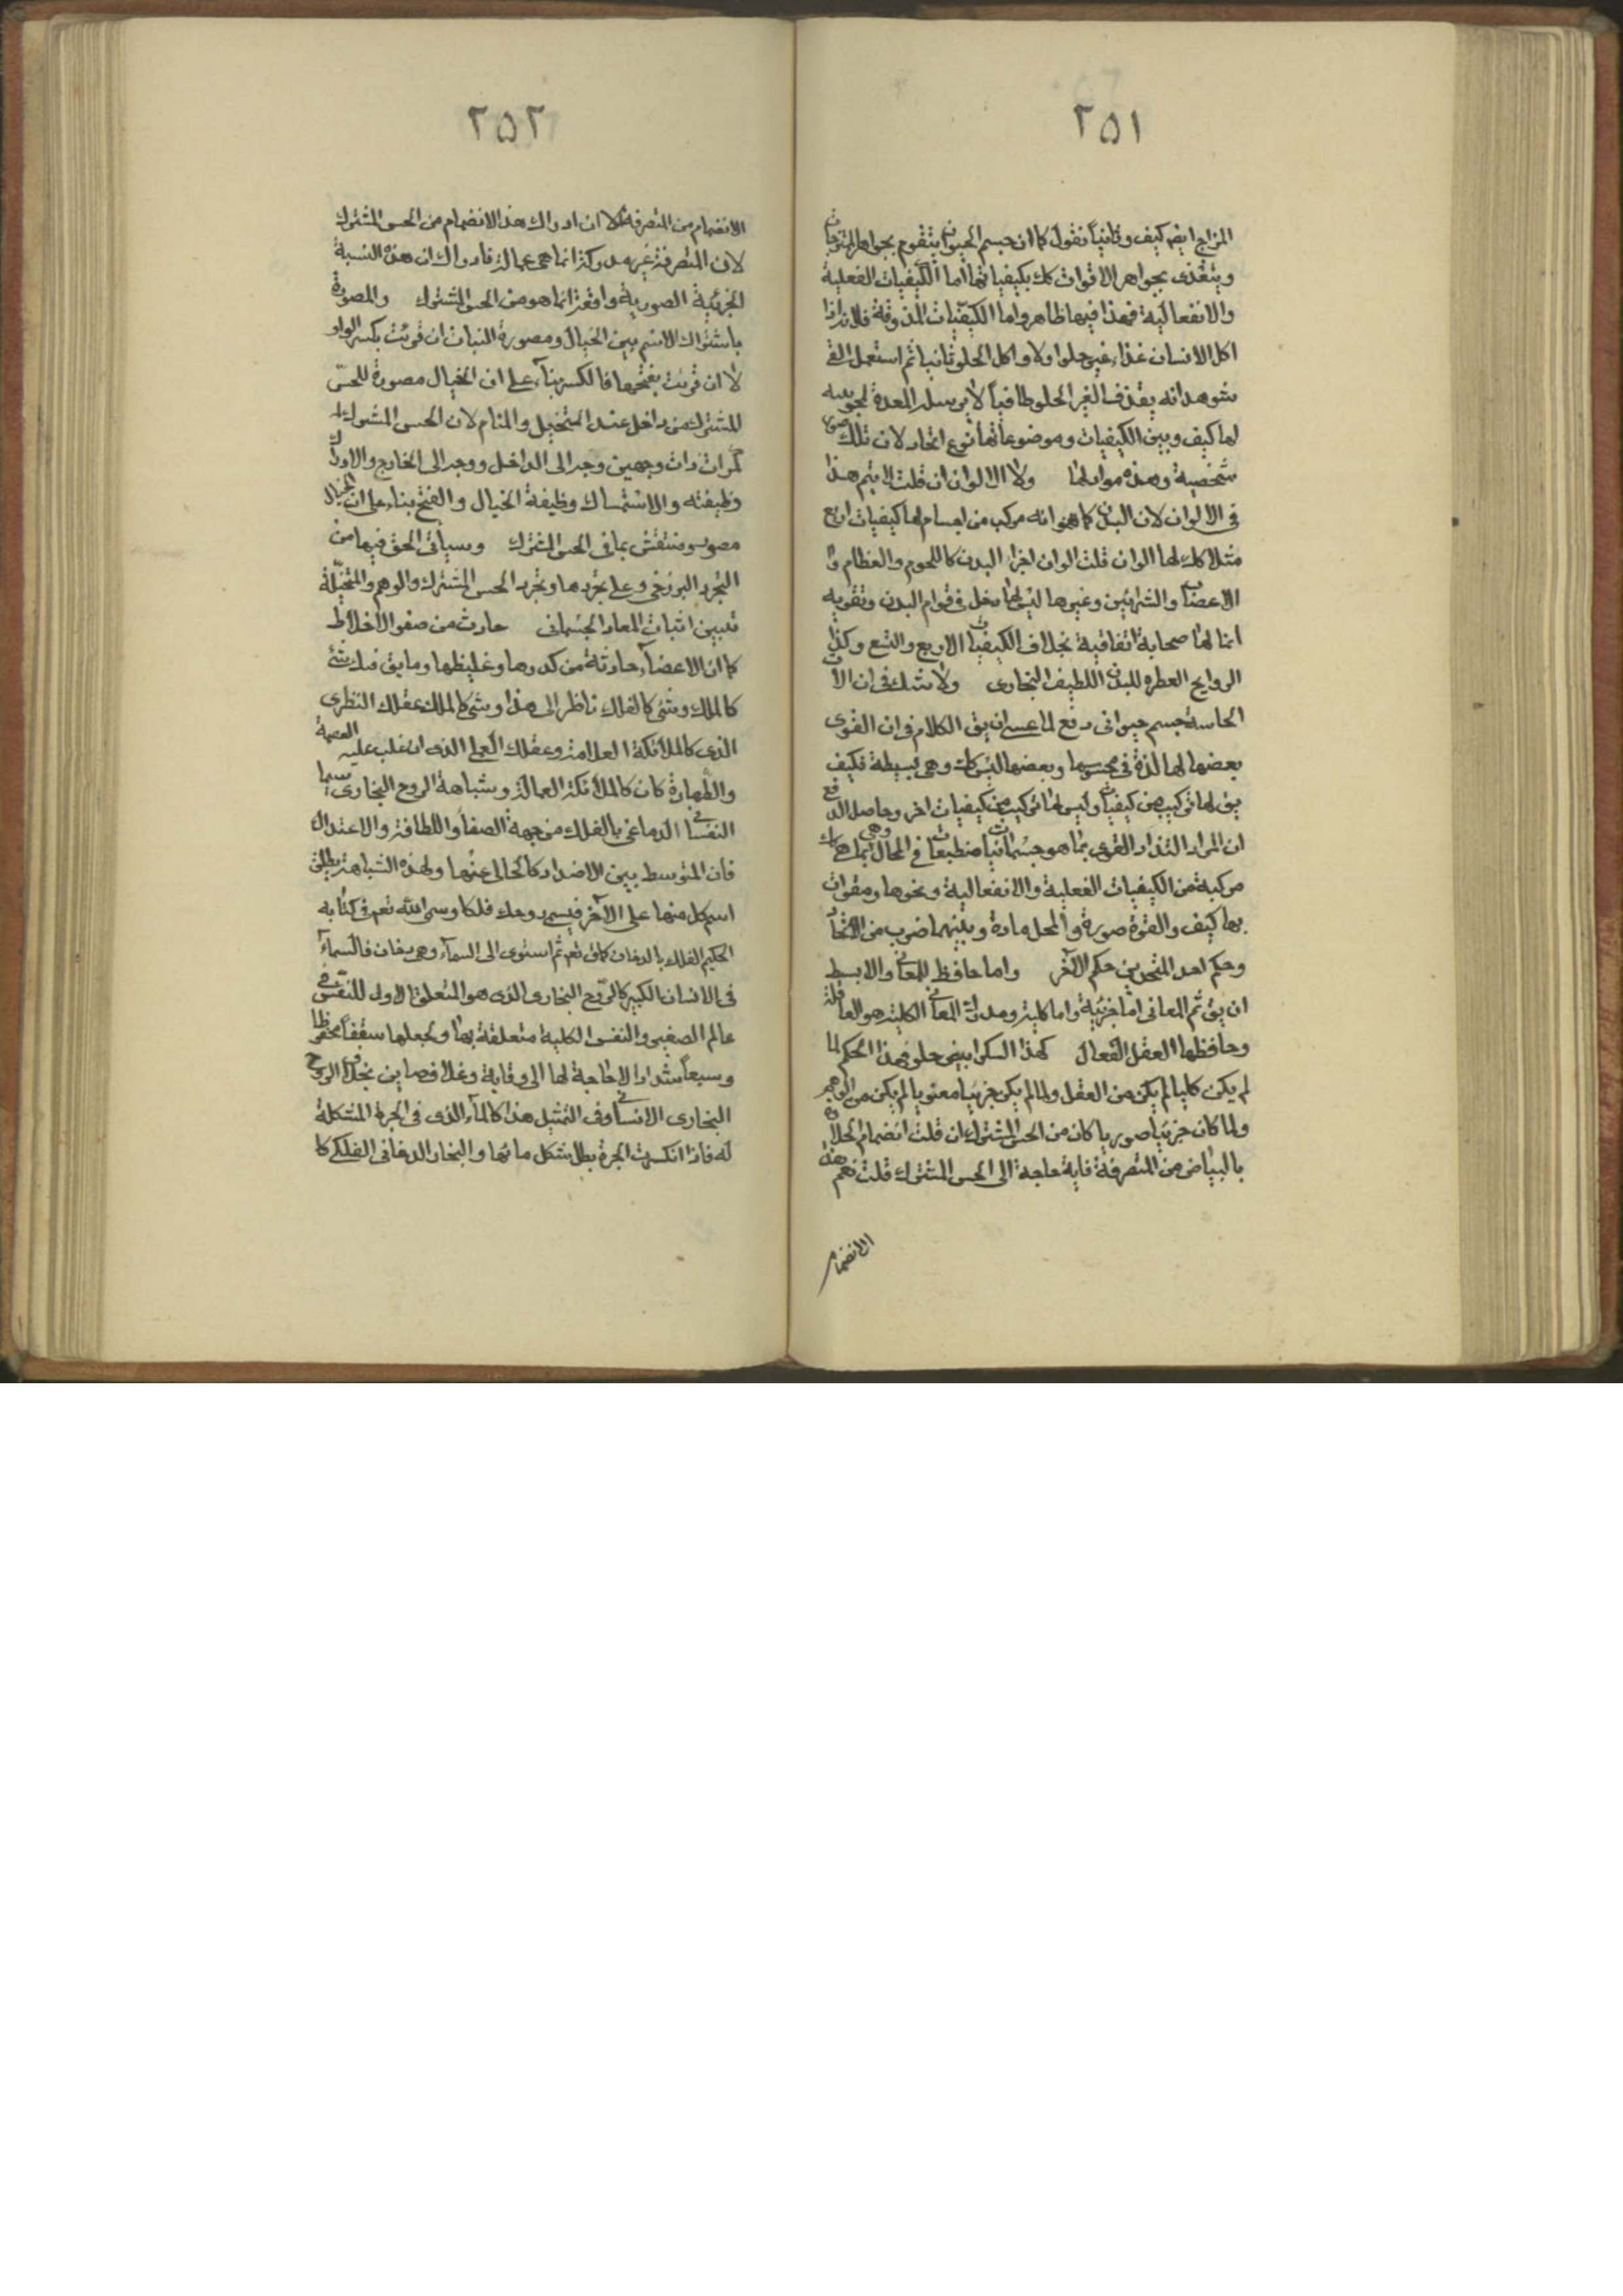 ٢٥١
المزاج ايضه كيف وثانيا نقول كما ان جسم الحيوان يتقوم بجواهر الممتزجات
ويتغذى بجواهر الاقوات كك بكيفياتها اما الكيفيات الفعلية
والانفعالية فهذا فيها ظاهر واما الكيفيات المذوقة فلانه اذا
اكل الانسان غذاء غير حلو اولا واكل الحلو ثانيا ثم استعمل القئ
شوهد انه يقذف الغير الحلو طافيا لان المعدة
لها كيف وبين الكيفيات وموضوعاتها نوع اتحاد لان تلك صور
شخصية وهذه مواد لها ولا الالوان ان قلت لا يتم هذا
فى الالوان لان البدن كما انه مركب من اجسام لها كيفيات اربع
مثلا كك لها الوان قلت الوان اجزاء البدن كاللحوم والعظام و
الاعصاب والشرائين وغيرها ليس لها دخل فى قوام البدن وتقويه
انما لها صحابة اتفاقية بخلاف الكيفيات الاربع والتسع وكذا
الروايح العطره للبدن اللطيف البخارى ولا شك فى ان الآت
الحاسة جسم حيوانى دفع لما عسى ان يق الكلام فى ان القوى
بعضها لها لذة فى محسوسها وبعضها ليس كك وهى بسيطة فكيف
يق لها تركيب من كيفيات وليس لها تركيب من كيفيات اخر وحاصل الدفع
ان المراد التذاذ القوى بما هو جسمانيات منطبعات فى المحال وهى بما هى كك
مركبة من الكيفيات الفعلية والانفعالية ونحوها ومقوات
بها كيف والقوة صورة والمحل مادة وبينهما ضرب من الاتحاد
وحكم احد المتحدين حكم الآخر واما حافظ للمعانى والابسط
ان يق ثم المعانى اما جزئية واما كلية ومدرك المعانى الكلية هو العاقلة
وحافظها العقل الفعال كهذا السكر ابيض حلو فهذا الحكم لما
لم يكن كليا لم يكن من العقل ولما لم يكن جزئيا معنويا لم يكن من الوهم
ولما كان جزئيا صوريا كان من الحس المشترك ان قلت انضمام الحلاوة
بالبياض من المتصرفة فاية حاجة الى الحس المشترك قلت نعم هذا
الانضمام
٢٥٢
الانضمام من المتصرفة الا ان ادراك هذا الانضمام من الحس المشترك
لان المتصرفة غير مدركة انما هى عمالة فادراك ان هذه النسبة
الجزئية الصورية واقعة انما هو من الحس المشترك والمصورة
باشتراك الاسم بين الخيال ومصورة النبات ان قرئت بكسر الواو
لا ان قرئت بفتحها فالكسر بناء على ان الخيال مصورة للحس
المشترك من داخل عند التخيل والمنام لان الحس المشترك
كمرآت ذات وجهين وجه الى الداخل ووجه الى الخارج والادراك
وظيفته والاستمساك وظيفة الخيال والفتح بناء على ان الخيال
مصور ومنتقش بما فى الحس المشترك وسياتى الحق فيها من
التجرد البرزخى وعلى تجردها وتجرد الحس المشترك والوهم والمتخيلة
تبيين اثبات المعاد الجسمانى حادث من صفو الاخلاط
كما ان الاعضاء حادثة من كدرها وغليظها وما يق فيك شئ
كالملك وشئ كالفلك ناظر الى هذا وشئ كالملك عقلك النظرى
الذى كالملائكة العلامة وعقلك العملى الذى ان غلب عليه العصمة
والطهارة كان كالملائكة العمالة وشباهة الروح البخارى سيما
النفسانى الدماغى بالفلك من جهة الصفا واللطافة والاعتدال
فان المتوسط بين الاضداد كالخالى عنها ولهذه الشباهة يطلق
اسم كل منها على الآخر فيسمى روحك فلكا وسمى الله تعم فى كتابه
الحكيم الفلك بالدخان كما قى تعم ثم استوى الى السماء وهى دخان فالسماء
فى الانسان الكبير كالروح البخارى الذى هو المتعلق الاول للنفس فى
عالم الصغير والنفس الكلية متعلقة بها ولجعلها سقفا محفوظا
وسبعا شدادا لا حاجة لها الى وقاية وغلاف صاين بخلاف الروح
البخارى الانسانى وفى التمثيل هذا كالماء الذى فى الجرة المتشكلة
له فاذا انكسرت الجرة بطل شكل مائها والبخار الدخانى الفلكى كا